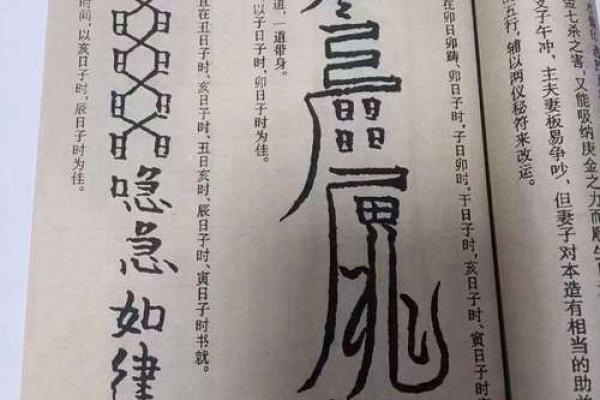 金七杀之害，又能吸纳庚金之力而顺生
支子午冲，主夫妻板易争吵，但妻子对本造有相当的助
五行，辅以两仪秘符来改运。
在卯日卯踌、卯日子时，子日卯时，于日子时，亥日子时、寅日子时
道，一道带身。
以子日子时，卯日子时为佳。
在丑日子时、亥日子时、丑日亥时、辰日子时、寅日子时书就。
喼急如律
时间，以亥日子时，辰日子时为佳。